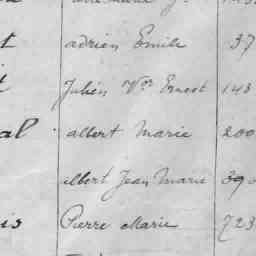 t adrien Emile 37
Julien Vor Ernest 148
al albert Marie 200
albert Jean Marie 390
is Pierre Marie 723